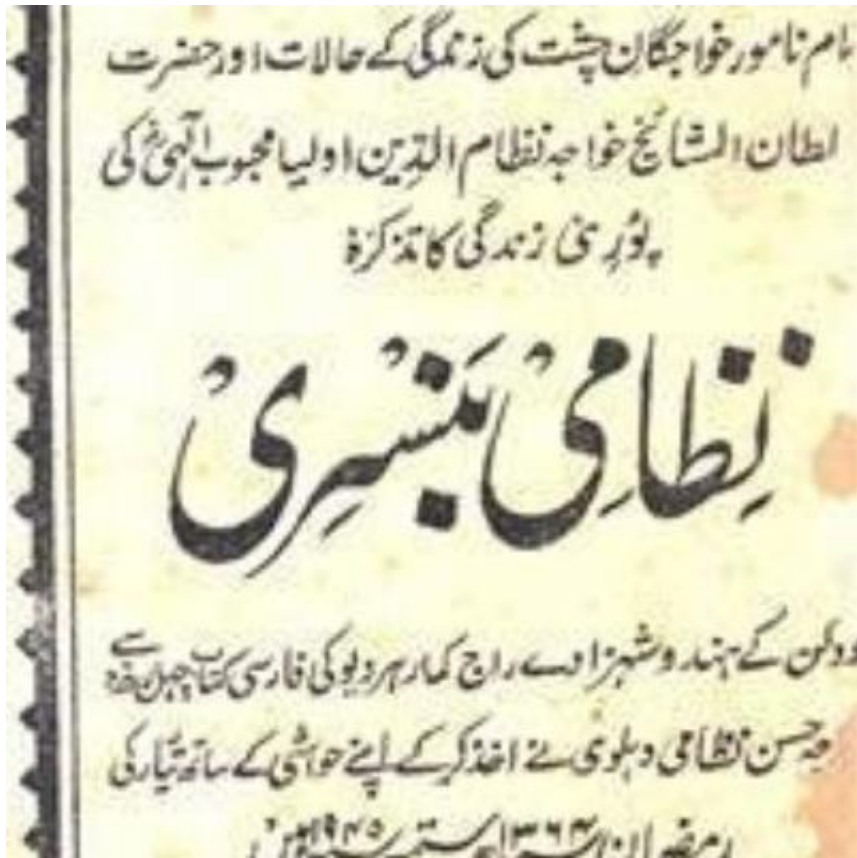 نام نامور خواجگان چشت کی زندگی کے حالات اور حضرت
لطان المشائخ خواجہ نظام الدین اولیا محبوب الٰہی کی
پوری زندگی کا تذکرہ
نظامی بنسری
دکن کے ہندو شہزادے راج کمار ہردیو کی فارسی کتاب چہل روزہ سے
جہ حسن نظامی دہلوی نے اخذ کر کے اپنے حواشی کے ساتھ تیار کی
رمضان ۱۳۶۴ ستمبر ۱۹۴۵ میں